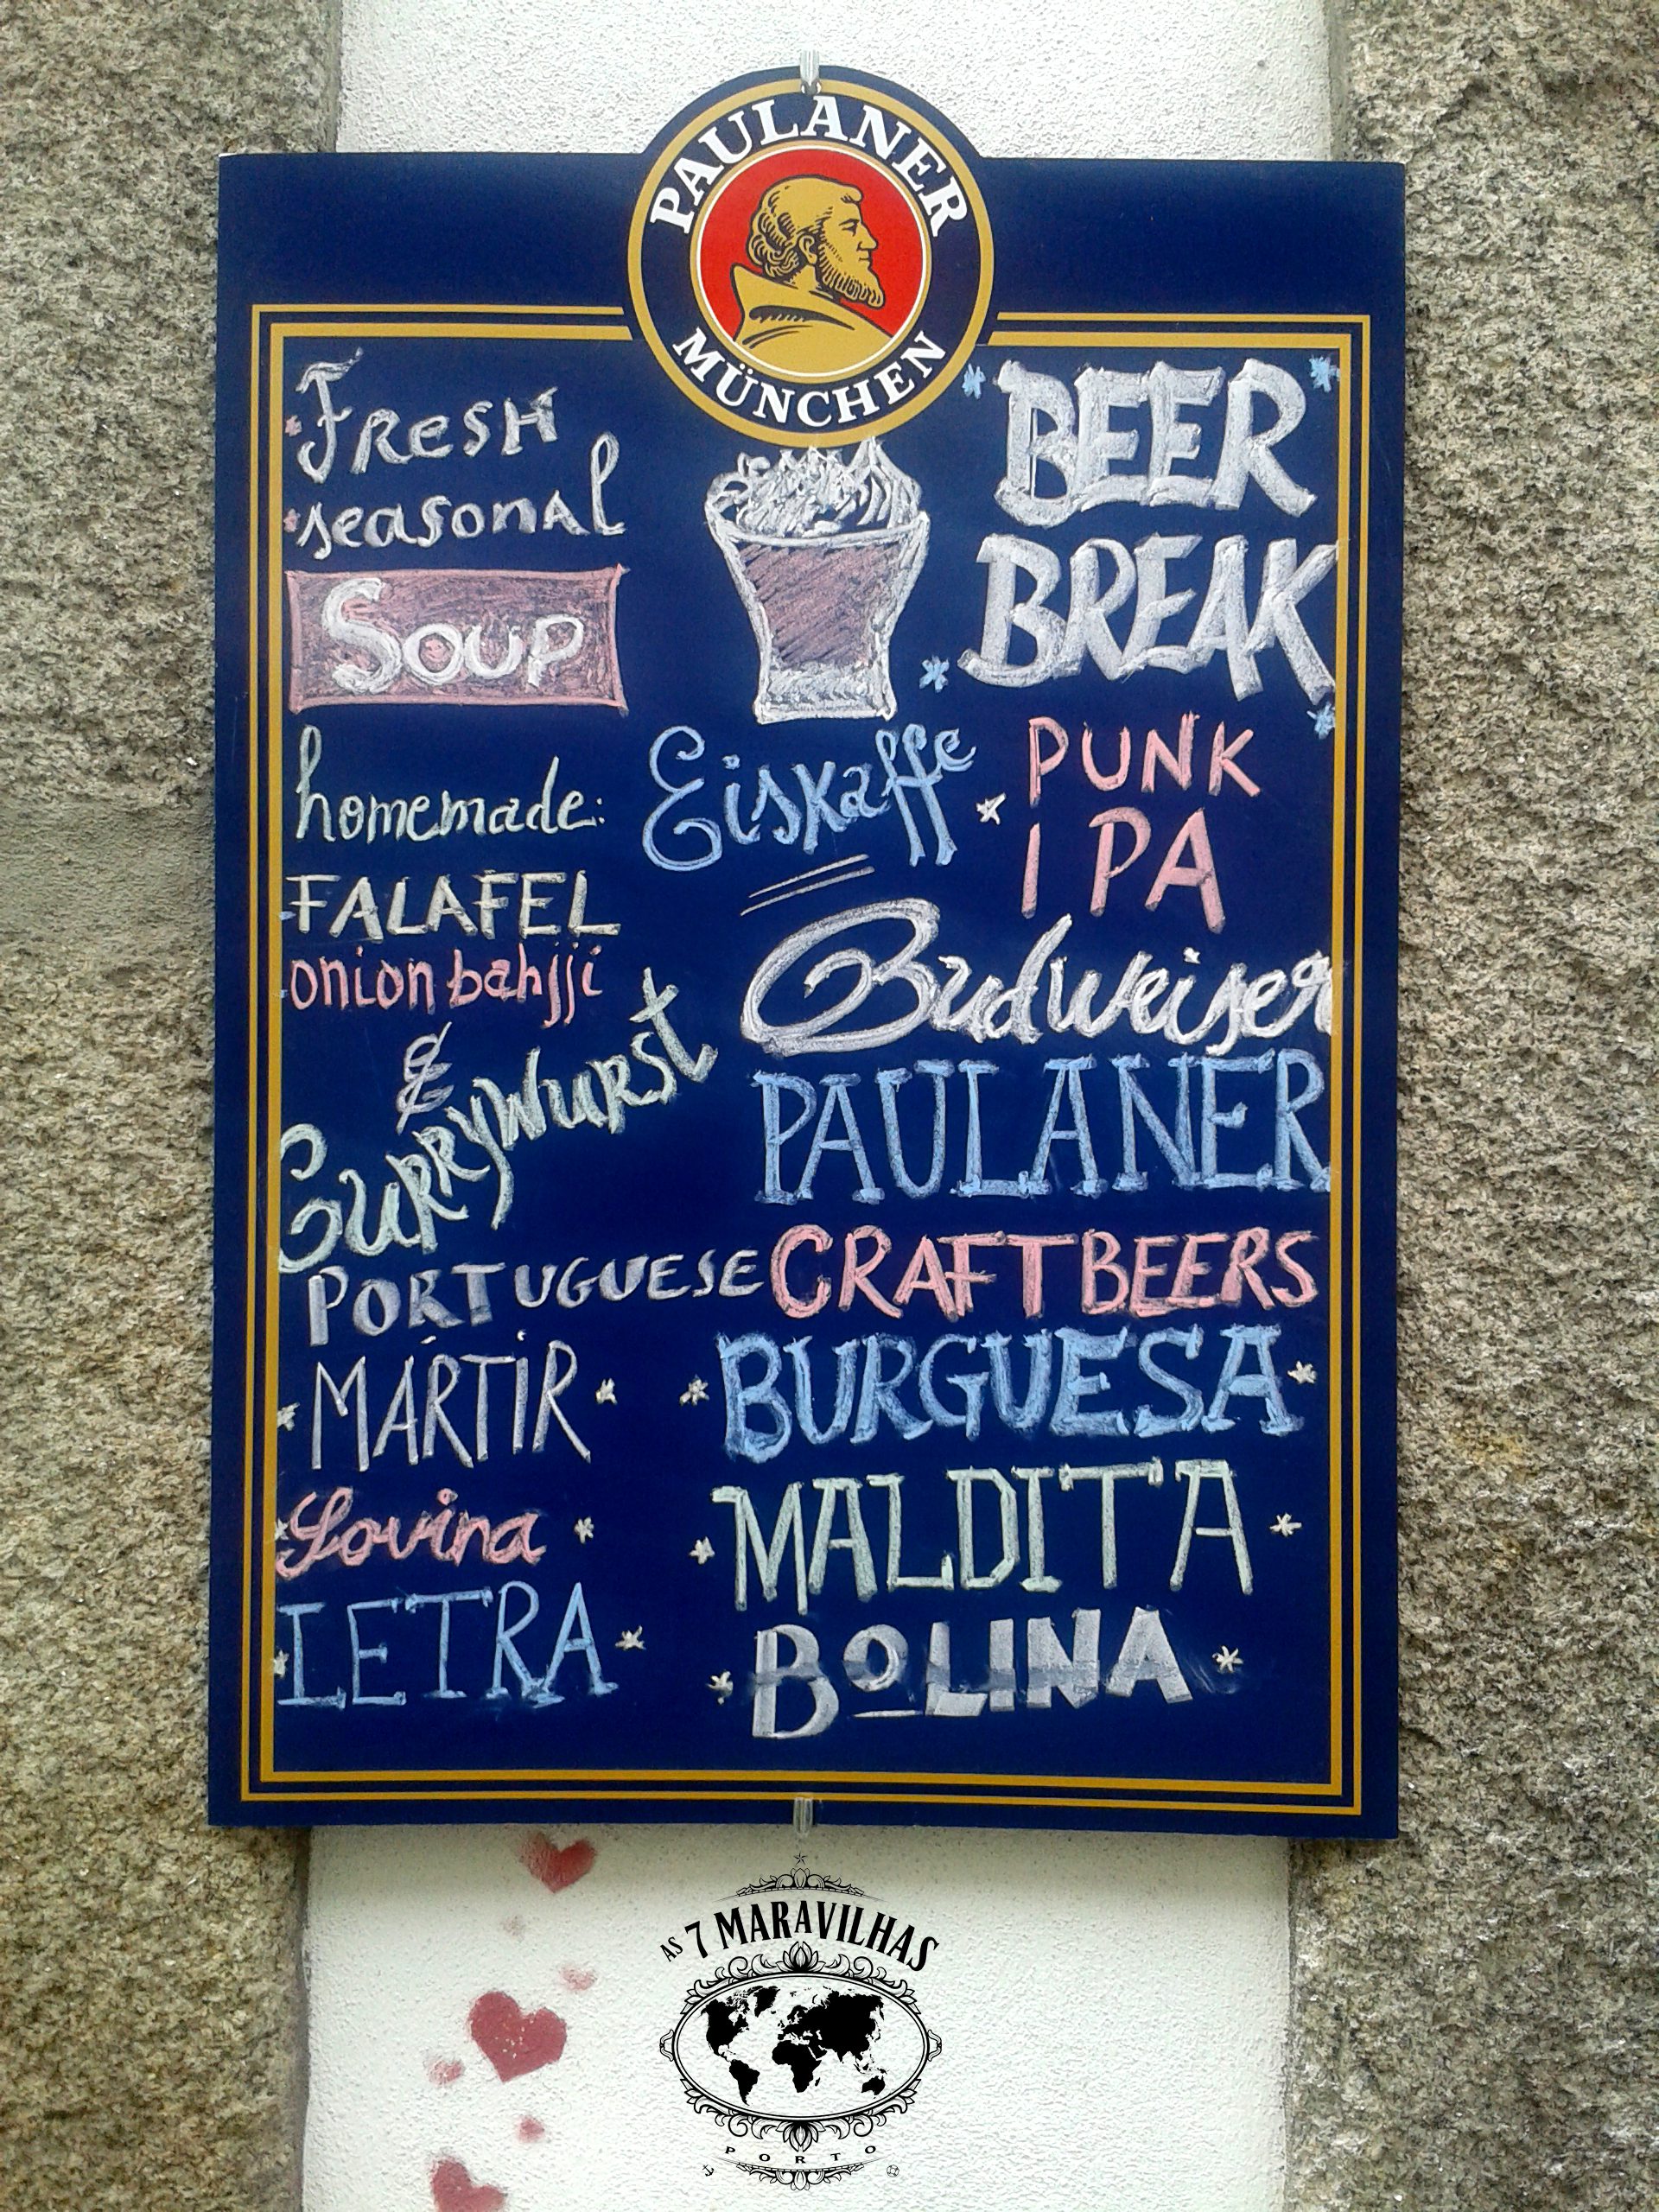 PAULANER
MÜNCHEN
Fresh
seasonal
Soup
homemade:
FALAFEL
onion bahjji
&
Currywurst
Eiskaffe
BEER
BREAK
PUNK
IPA
Budweiser
PAULANER
PORTUGUESE CRAFT BEERS
MÁRTIR
BURGUESA
Sovina
MALDITA
LETRA
BOLINA
AS 7 MARAVILHAS
PORTO